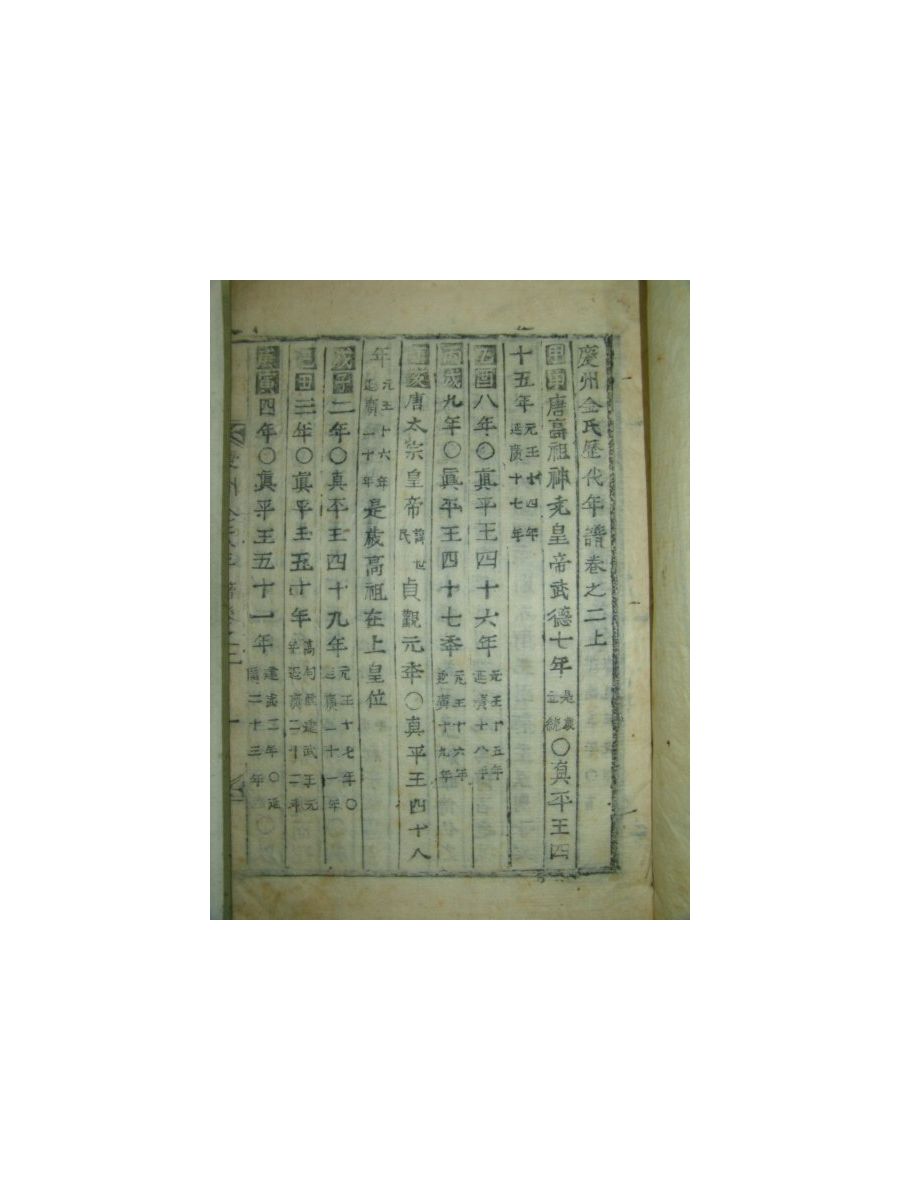 慶州金氏歷代年譜卷之二上
甲申唐高祖神尭皇帝武德七年是歲正統〇眞平王四
十五年元王十四年延廣十七年
乙酉八年〇眞平王四十六年元王十五年延廣十八年
丙戌九年〇眞平王四十七秊元王十六年延廣十九年
丁亥唐太宗皇帝諱世民貞觀元秊〇真平王四十八
年元王十六年延廣二十年是歲高祖在上皇位
戊子二年〇真平王四十九年元王十七年〇延廣二十一年
己丑三年〇眞平王五十年高句麗建武王元年延廣二十二年
庚寅四年〇眞平王五十一年建武二年〇延廣二十三年